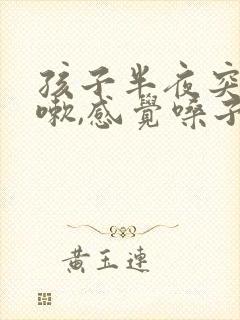 孩子半夜突
嗽,感覺嗓子
黃玉連